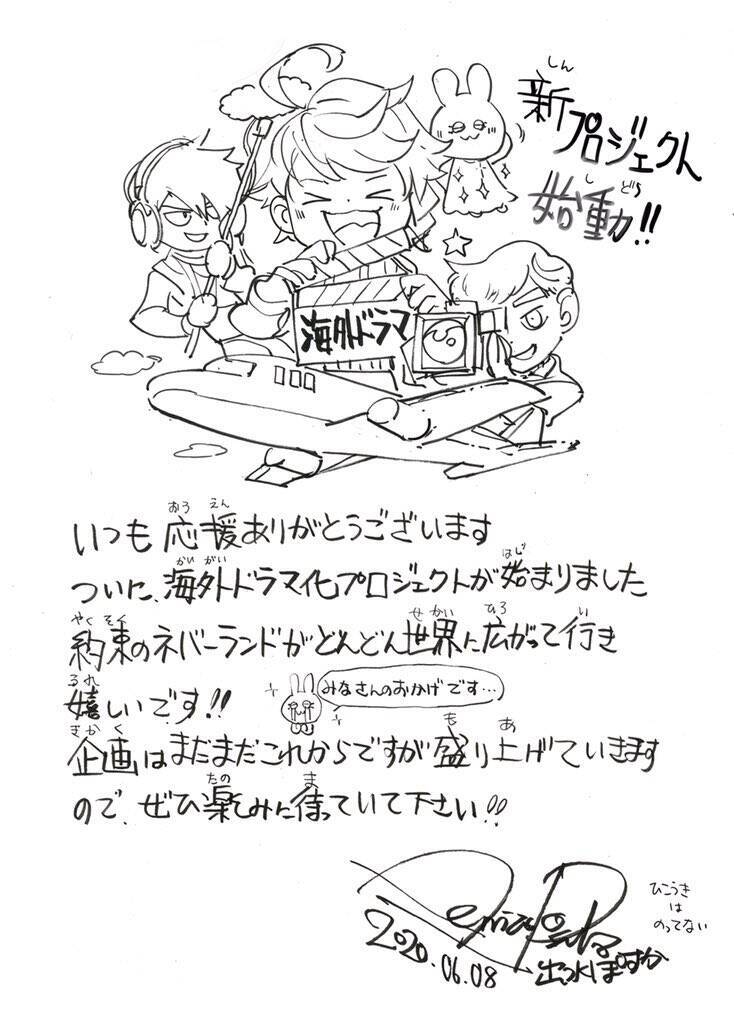 新プロジェクト
始動!!
海外ドラマ
いつも応援ありがとうございます
ついに、海外ドラマ化プロジェクトが始まりました
約束のネバーランドがどんどん世界に広がって行き
嬉しいです!!
みなさんのおかげです…
企画はまだまだこれからですが盛り上げていきます
ので、ぜひ楽しみに待っていて下さい!!
ひこうき
は
のってない
2020.06.08
出水ぽすか